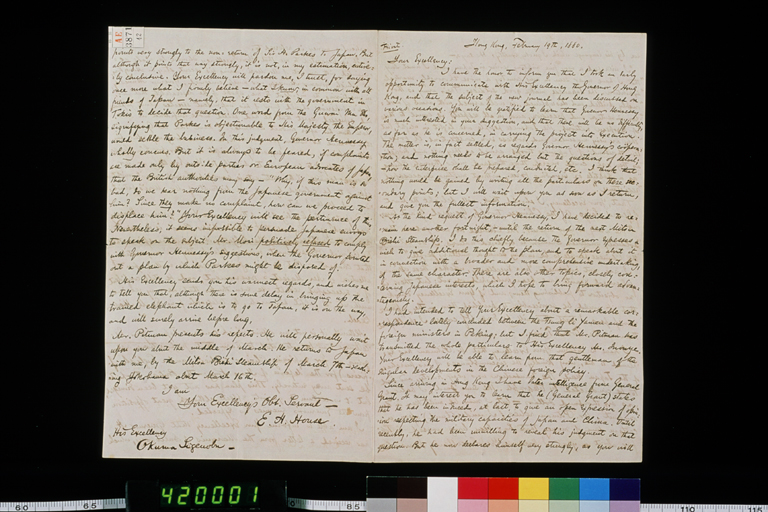 Private
Hong Kong, February 19th, 1880.
Your Excellency;
I have the honor to inform you that I took an early
opportunity to communicate with His Excellency the Governor of Hong
Kong, and that the subject of the new journal has been discussed on
various occasions. You will be gratified to learn that Governor Hennessy
is much interested in your suggestion, and that there will be no difficulty
as far as he is concerned, in carrying the project into execution.
The matter is, in fact settled, as regards Governor Hennessy's coöpera-
tion, and nothing needs to be arranged but the questions of detail;
how the enterprise shall be prepared, controlled, etc. I think that
nothing would be gained by writing the particulars on these
points, but I will wait upon you as soon as I return,
and give you the fullest information.
At the kind request of Governor Hennessy, I have decided to re-
main here another fortnight, until the return of the next Mitsu
Bishi Steamship. I do this chiefly because the Governor expresses a
wish to give additional thought to the plan, and to speak about it
in connection with a broader and more comprehensive undertaking
of the same character. There are also other topics, closely con-
cerning Japanese interests, which I hope to bring forward advan-
tageously.
I had intended to tell Your Excellency about a remarkable cor-
respondence lately concluded between the Tsung li Yamen and the
foreign ministers in Peking, but I find that Mr. Pitman has
transmitted the whole particulars to His Excellency Mr. Inouye.
Your Excellency will be able to learn from that gentleman, of the
singular developments in the Chinese foreign policy.
Since arriving in Hong Kong I have later intelligence from General
Grant. It may interest you to learn that he (General Grant) states
that he has been induced, at last, to give an open expression of opin-
ion respecting the military capacities of Japan and China. Until
recently, he had been unwilling to reveal his judgment on that
question. But he now declares himself very strongly, as you will
AE
3871
12
points very strongly to the non-return of Sir H. Parkes to Japan. But
although it points that way strongly, it is not, in my estimation, entire-
ly conclusive. Your Excellency will pardon me, I trust, for saying
once more what I firmly believe – what I know, in common with all
friends of Japan – namely, that it rests with the government in
Tokio to decide that question. One word from the Gwaimusho,
signifying that Parkes is objectionable to His Majesty the Emperor,
would settle the business. In this judgment, Governor Hennessy
wholly concurs. But it is always to be feared, if complaints
are made only by outside parties or European advocates of Japan,
that the British authorities may say – "Why, if this man is so
bad, do we hear nothing from the Japanese government against
him? Since they make no complaint, how can we proceed to
displace him?" Your Excellency will see the pertinence of this.
Nevertheless, it seems impossible to persuade Japanese envoys
to speak on the subject. Mr. Mori positively refused to comply
with Governor Hennessy's suggestions, when the Governor pointed
out a plan by which Parkes might be disposed of.
His Excellency sends you his warmest regards, and wishes me
to tell you that, although there is some delay in bringing up the
trained elephant which is to go to Japan, it is on the way,
and will surely arrive before long.
Mr. Pitman presents his respects. He will personally wait
upon you about the middle of March. He returns to Japan
with me, by the Mitsu Bishi Steamship of March 7th, reach-
ing Yokohama about March 16th.
I am
Your Excellency's Obt. Servant –
E. H. House
His Excellency
Okuma Sigenobu –
60 65
420001
85
110 115